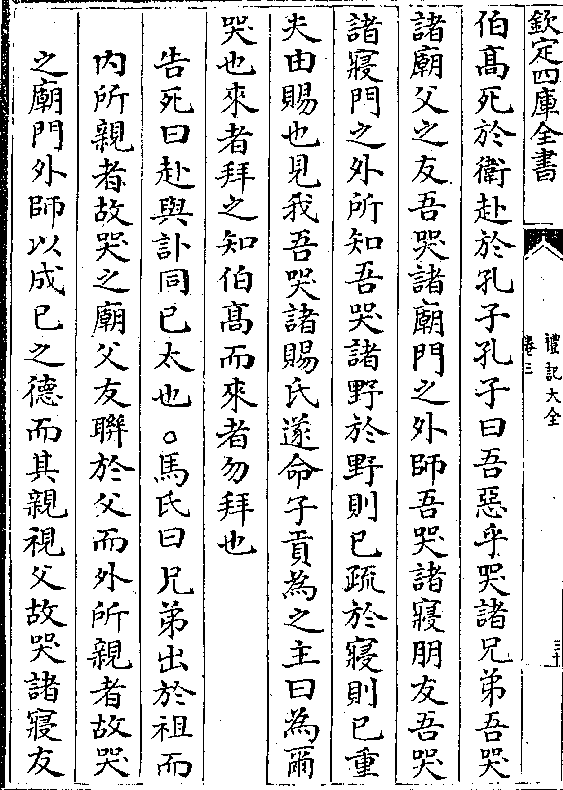 欽定四庫全書
禮記大全
卷三
三十
伯髙死於衛赴於孔子孔子曰吾惡乎哭諸兄弟吾哭
諸廟父之友吾哭諸廟門之外師吾哭諸寢朋友吾哭
諸寢門之外所知吾哭諸野於野則已疏於寢則已重
夫由賜也見我吾哭諸賜氏遂命子貢為之主曰為爾
哭也來者拜之知伯髙而來者勿拜也
告死曰赴與訃同已太也○馬氏曰兄弟出於祖而
内所親者故哭之廟父友聨於父而外所親者故哭
之廟門外師以成已之德而其親視父故哭諸寢友